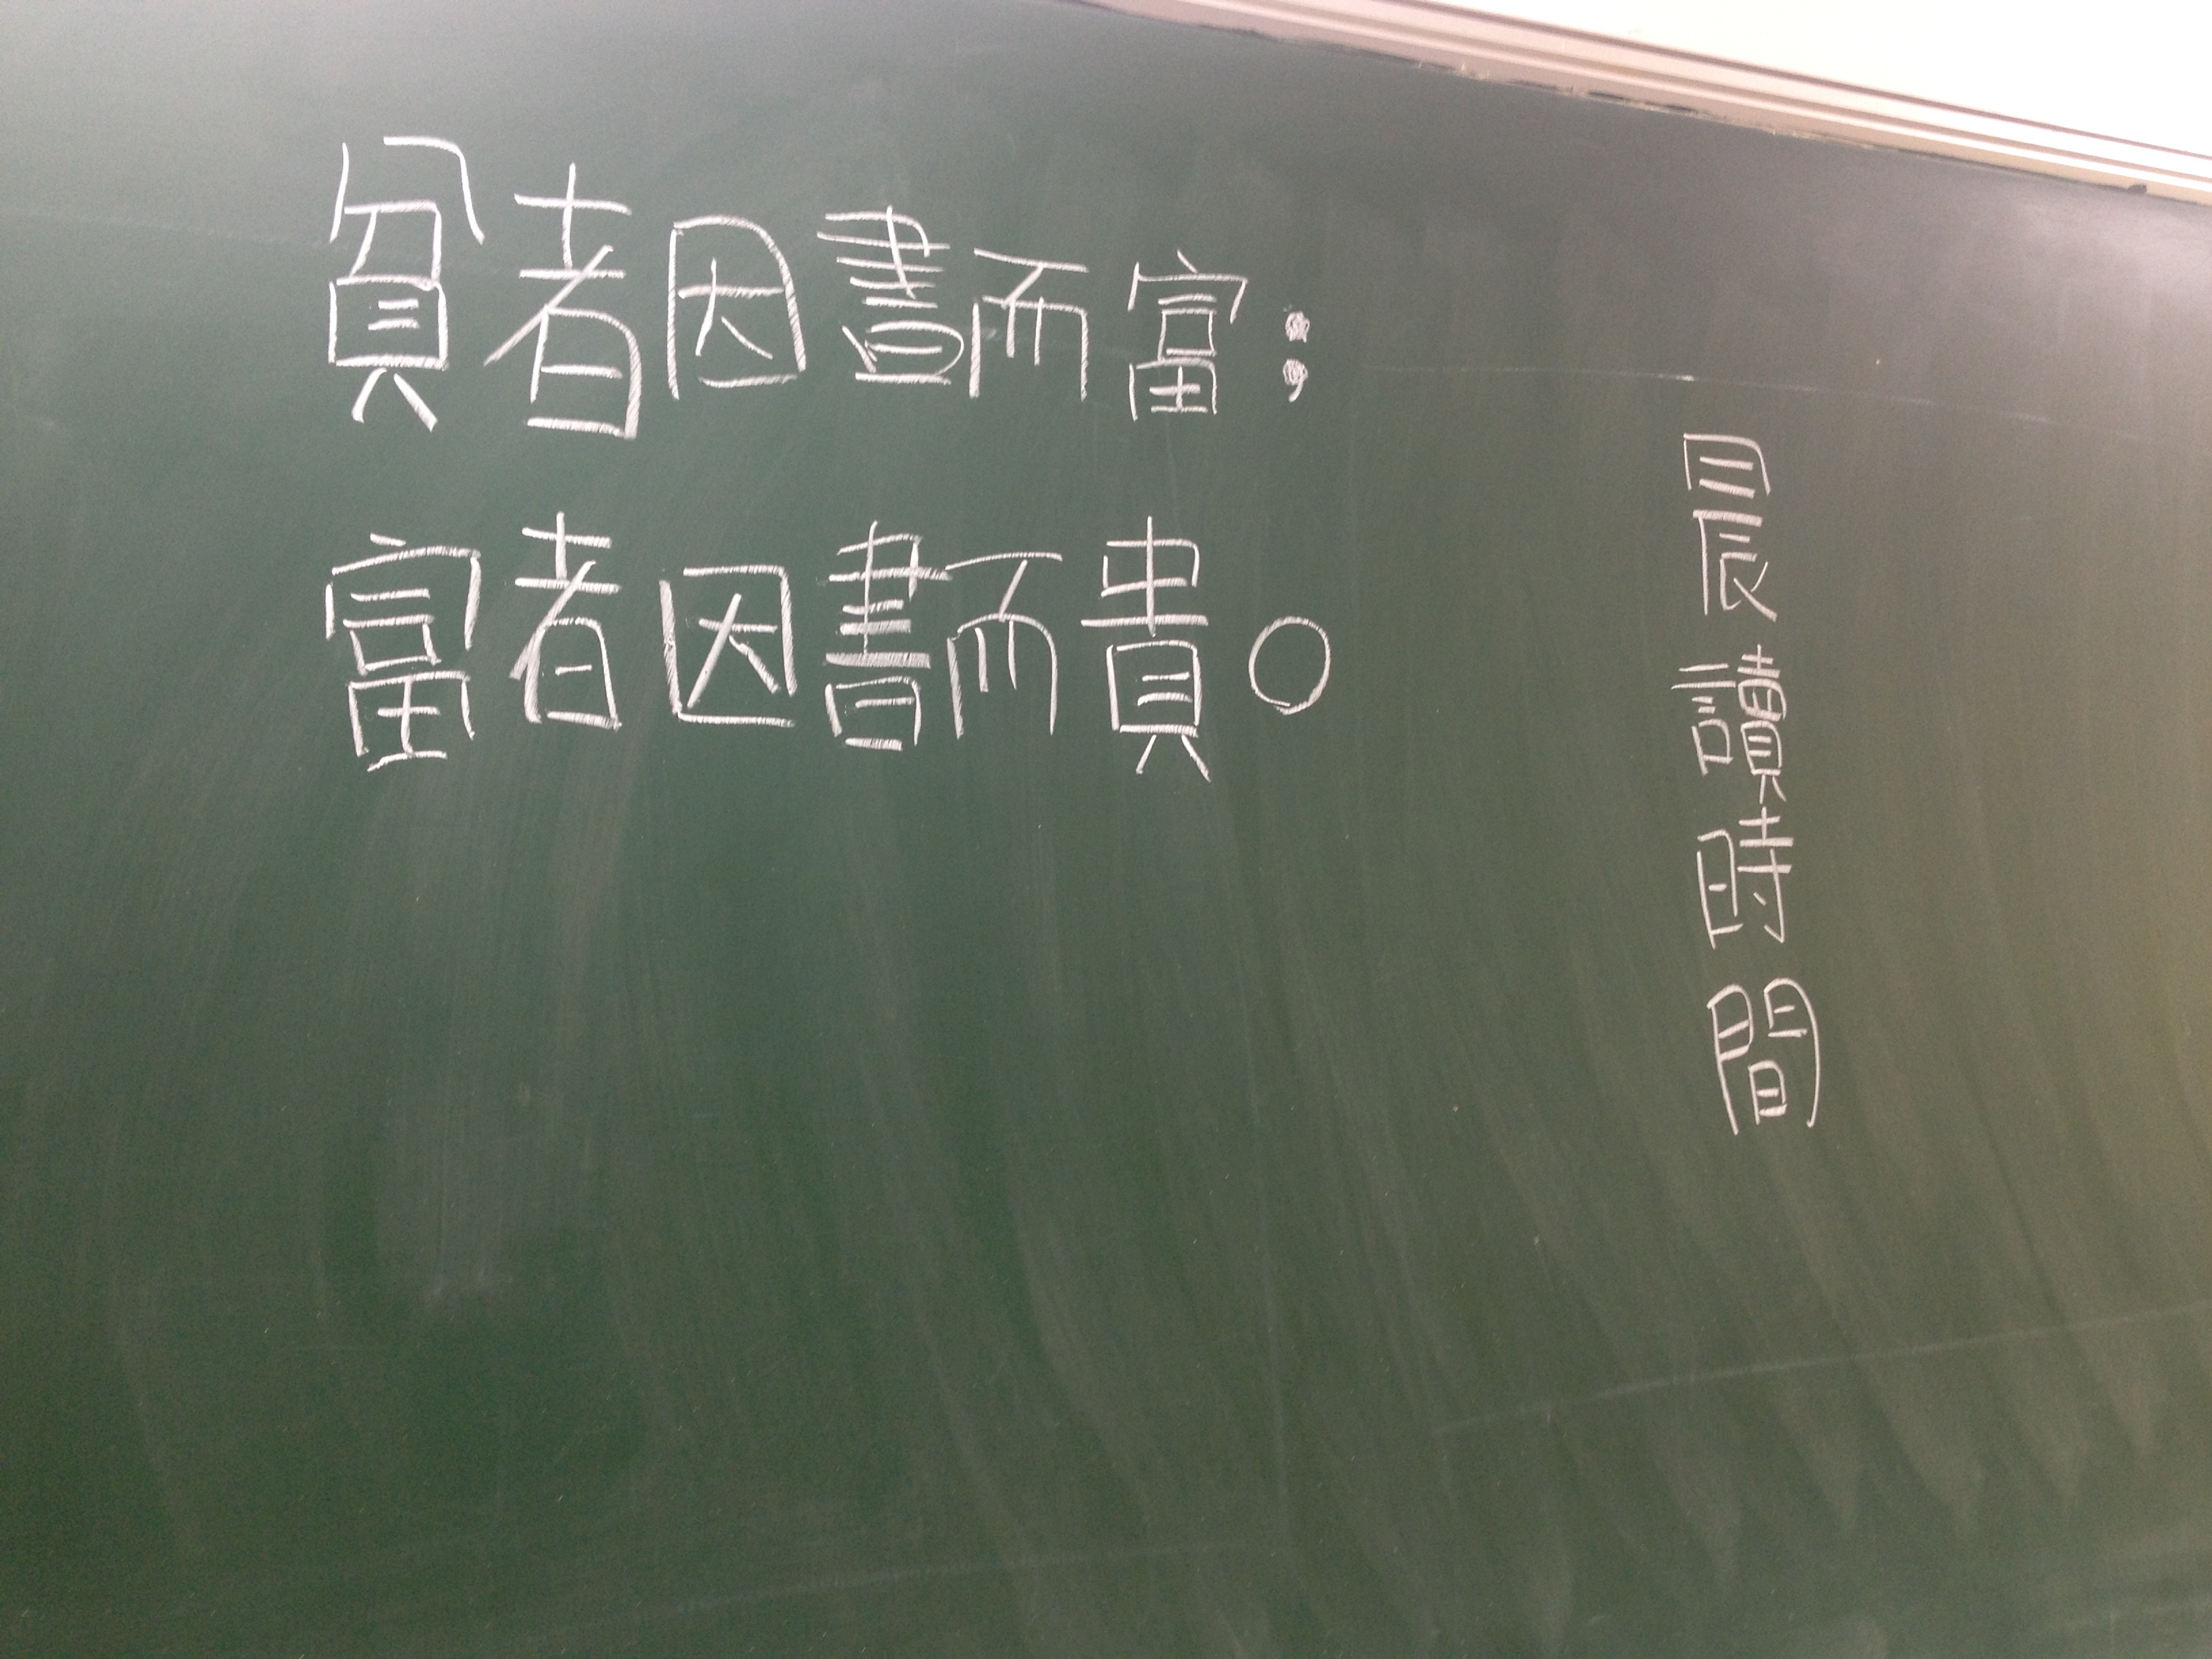 貧者因書而富；
富者因書而貴。
晨讀時間